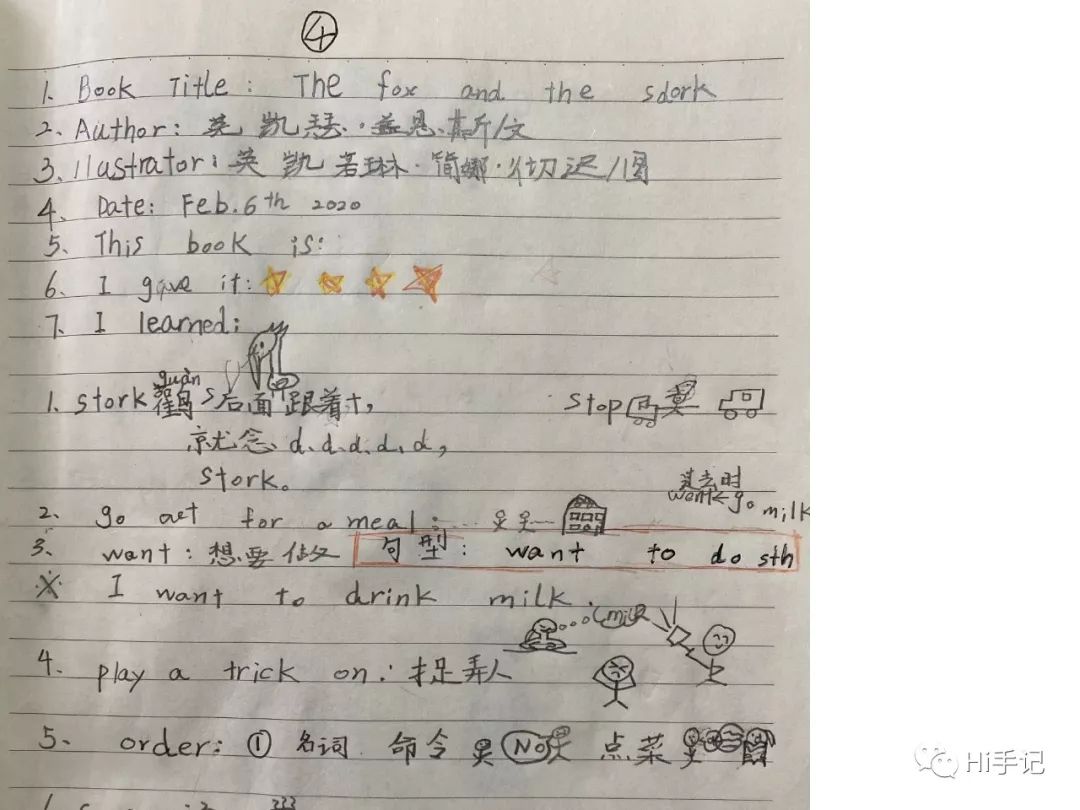 ④
1. Book Title: The fox and the sdork
2. Author: 英 凯瑟 · 恩 /文
3. Ilustrator: 英 凯若琳 · 简娜 · /图
4. Date: Feb. 6th 2020
5. This book is:
6. I gave it:
7. I learned:
guàn
1. stork 鹳 s后面跟着t, stop
就念 d、d、d、d、d,
stork。
过去时
went←go milk
2. go out for a meal: ……
3. want: 想要做 句型: want to do sth
※ I want to drink milk.
milk
4. play a trick on: 捉弄人
5. order: ① 名词 命令 No 点菜
Hi手记